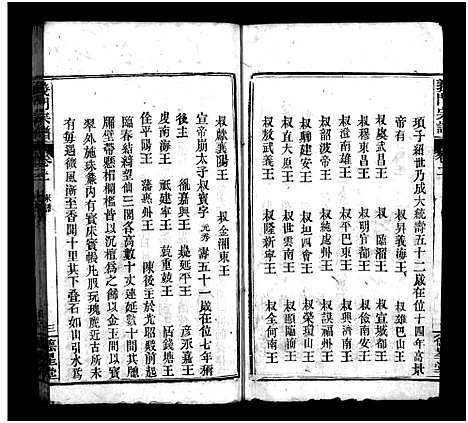 頊子紹世乃成大統壽五十二歲在位十四年高景
叔昇義海王 雄巴山王
叔虞武昌王 叔 臨溜王 叔宣城都王
叔穆東昌王 叔明宜都王 叔興濟南王
叔澄南雄王 叔平巴東王 叔東臨海王
叔韶波帝王 叔純盧州王 叔謨福州王
叔騑建安王 叔坦四會王 叔榮環山王
叔敖武義王 叔世雲南王 叔顯臨南王
叔放叢南王 叔隆新寧王 叔全何南王
叔縣義陽王 叔金湘東王
宣帝崩太子叔寶字元秀壽五十一歲在位七年禎
後主 徹嘉興王 嶷延平王 彥永嘉王
虔南海王 祗建寧王 莊重競王 恬錢塘王
佺平陽王 藩惠州王 陳後王於光昭殿前起
臨春結綺望仙三閣各高數十丈連延數十間其牖
牖壁帶懸楣欄檻皆以沉檀爲之飾以金玉間以珠
翠外施珠簾內有寶床寶帳凡服玩瑰麗近古所未
有每遇微風漸至香聞十里其下叠石如山引水爲
義門宗譜 卷二
三 德星堂